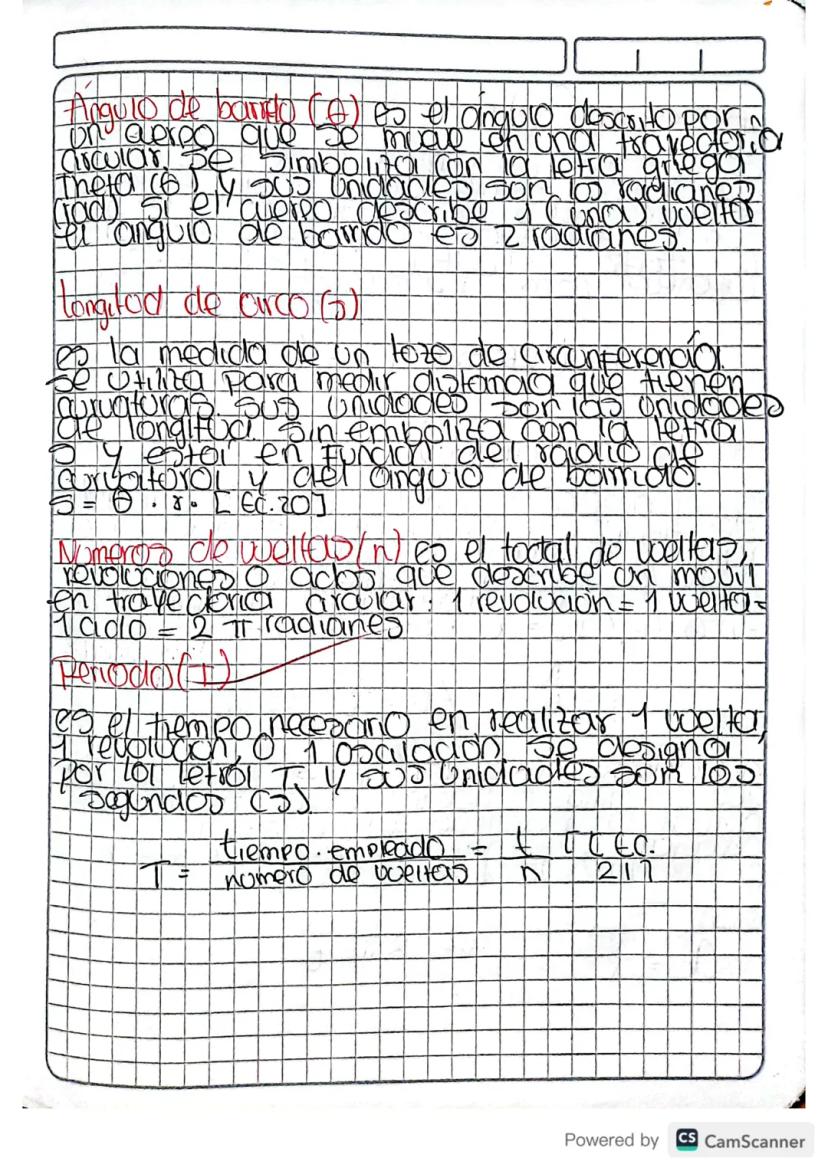 Ángulo de barrido (θ) es el ángulo descrito por
un cuerpo que se mueve en una trayectoria
circular, se simboliza con la letra griega
theta (θ) y sus unidades son los radianes
(rad) si el cuerpo describe 1 (una) vuelta
el angulo de barrido es 2 radianes.
Longitud de arco (s)
es la medida de un tozo de circunferencia.
se utiliza para medir distancia que tienen
curvaturas sus unidades son las unidades
de longitud. sin emboliza con la letra
s y esta en función del radio de
curvatura y del ángulo de barrido.
s = θ . r . [ Ec. 20]
Números de vueltas (n) es el toctal de vueltas,
revoluciones o ciclos que describe un movil
en trayectoria circular. 1 revolución = 1 vuelta =
1 ciclo = 2 π radianes
Periodo (T)
es el tiempo necesario en realizar 1 vuelta,
1 revolución, o 1 oscilación se designa
por la letra T y sus unidades son los
segundos (s)
tiempo . empleado = t [ [ Ec.
T = numero de vueltas n 21]
Powered by CS CamScanner